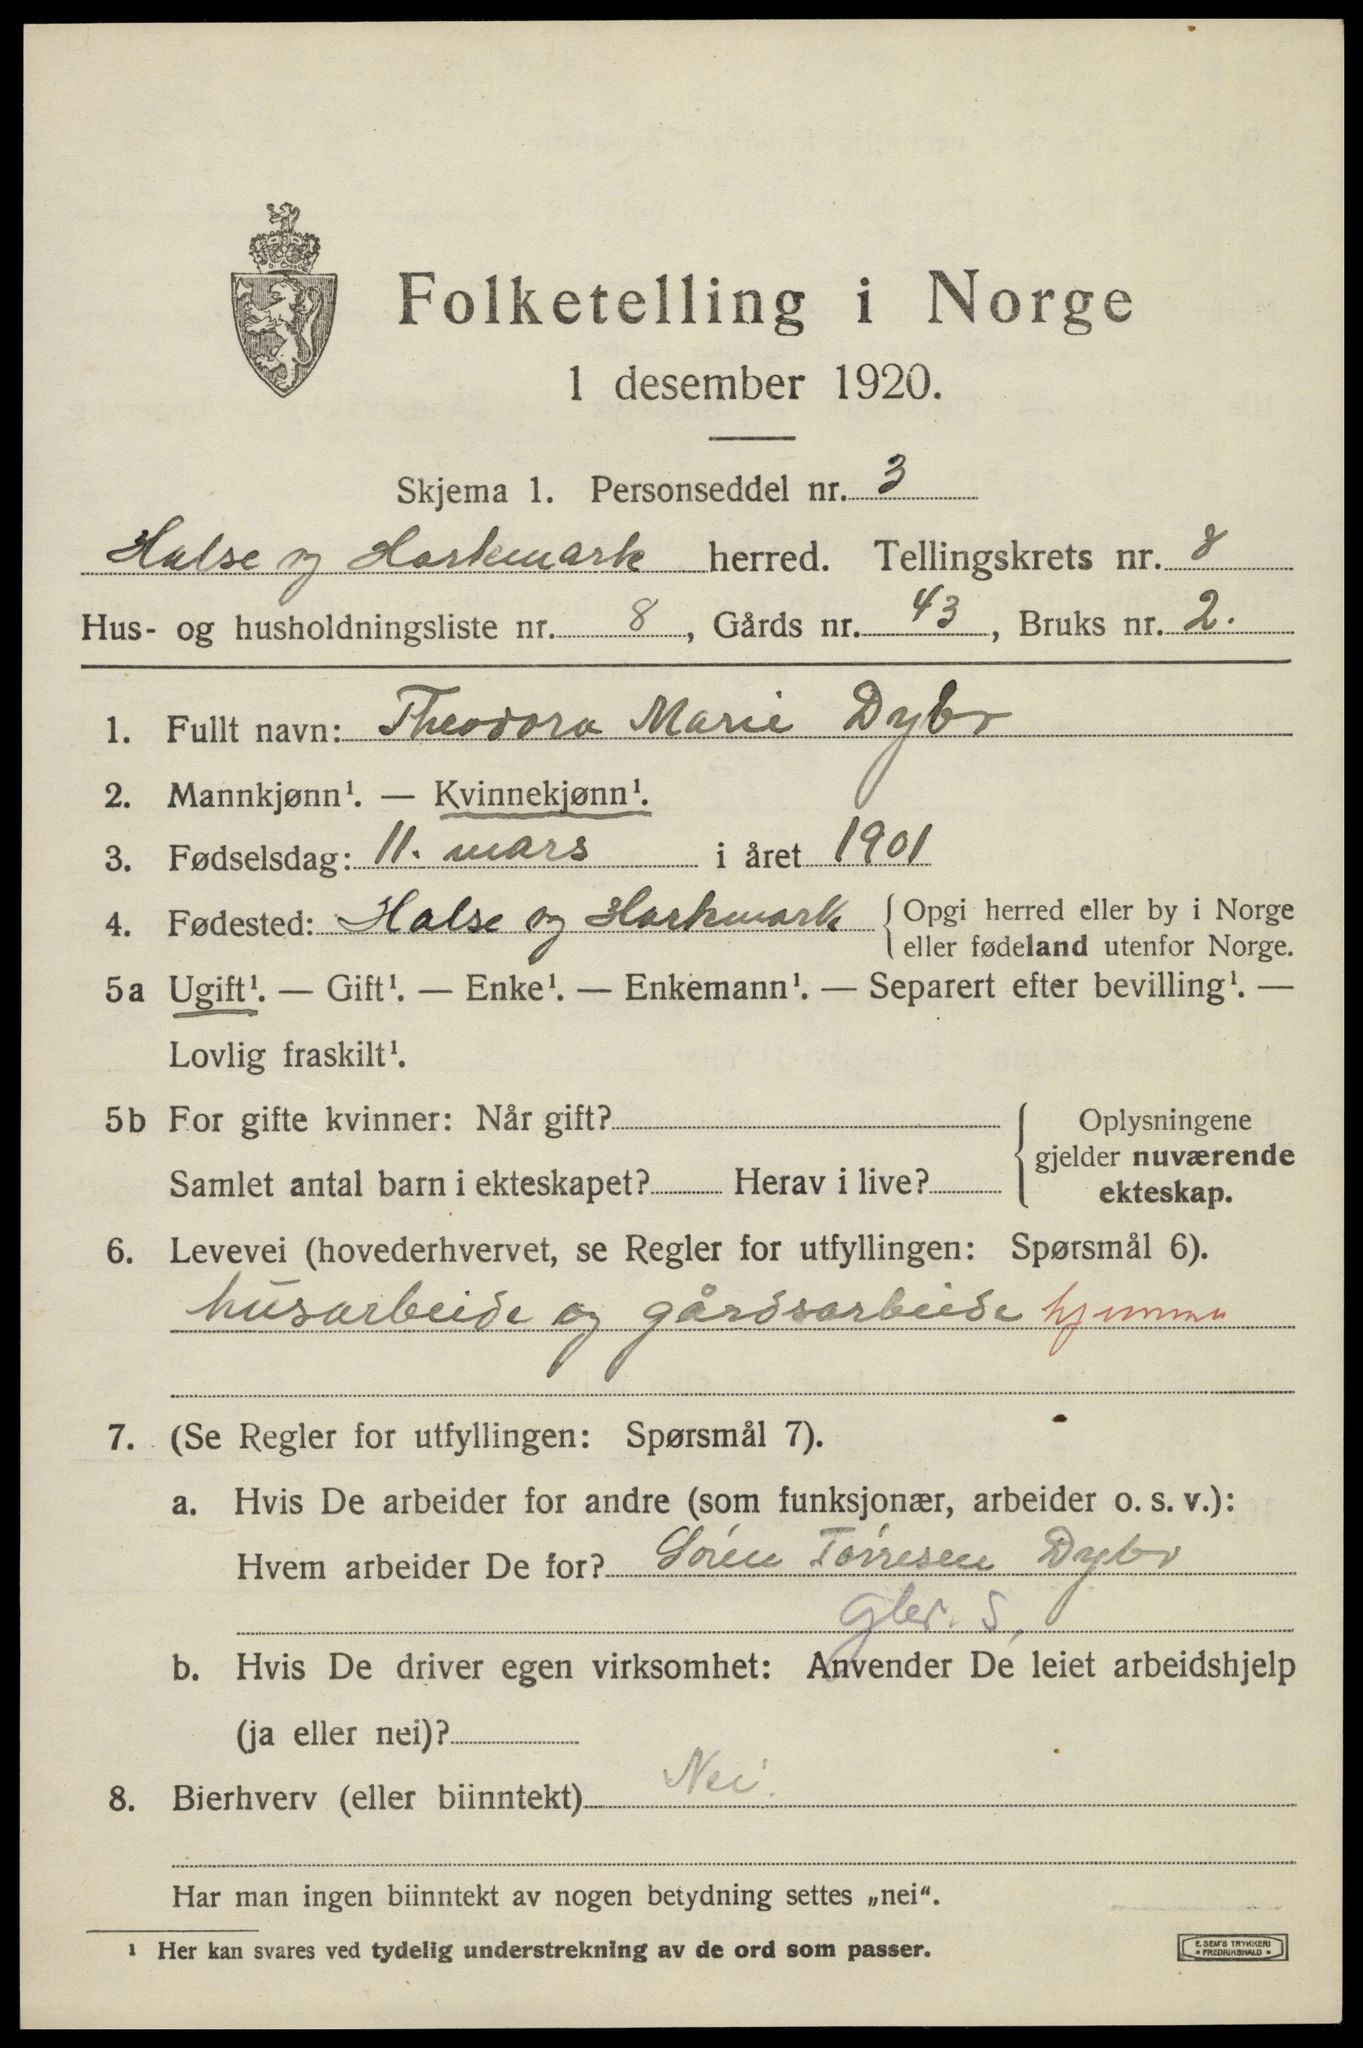 Folketelling i Norge
1 desember 1920.
Skjema 1. Personseddel nr. 3
Halse og Harkmark herred. Tellingskrets nr. 8
Hus- og husholdningsliste nr. 8, Gårds nr. 43, Bruks nr. 2.
1. Fullt navn: Theodora Marie Dybo
2. Mannkjønn¹. — Kvinnekjønn¹.
3. Fødselsdag: 11. mars i året 1901
4. Fødested: Halse og Harkmark { Opgi herred eller by i Norge
eller fødeland utenfor Norge.
5a Ugift¹. — Gift¹. — Enke¹. — Enkemann¹. — Separert efter bevilling¹. —
Lovlig fraskilt¹.
5b For gifte kvinner: Når gift?
Samlet antal barn i ekteskapet? Herav i live?
{ Oplysningene
gjelder nuværende
ekteskap.
6. Levevei (hovederhvervet, se Regler for utfyllingen: Spørsmål 6).
husarbeide og gårdsarbeide hjemme
7. (Se Regler for utfyllingen: Spørsmål 7).
a. Hvis De arbeider for andre (som funksjonær, arbeider o. s. v.):
Hvem arbeider De for? Sören Törresen Dybo
gbr. S,
b. Hvis De driver egen virksomhet: Anvender De leiet arbeidshjelp
(ja eller nei)?
8. Bierhverv (eller biinntekt) Nei.
Har man ingen biinntekt av nogen betydning settes „nei“.
¹ Her kan svares ved tydelig understrekning av de ord som passer.
E. SEM'S TRYKKERI
* FREDRIKSHALD *